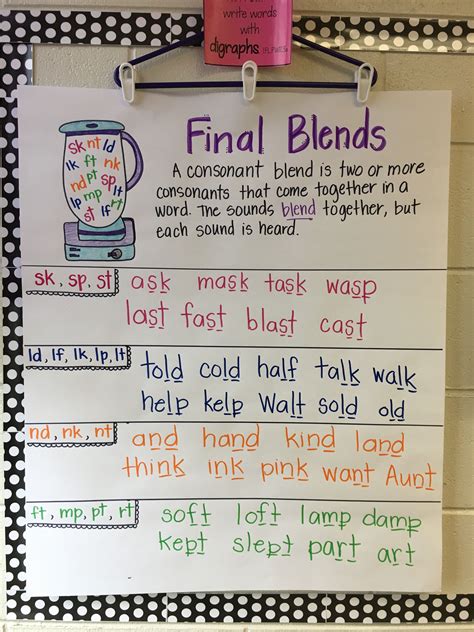 write words
with
digraphs
Final Blends
A consonant blend is two or more
consonants that come together in a
word. The sounds blend together, but
each sound is heard.
sk nt ld
lk ft nk
nd pt sp
lp mp lt
st lf rt
sk, sp, st ask mask task wasp
last fast blast cast
ld, lf, lk, lp, lt told cold half talk walk
help kelp Walt sold old
nd, nk, nt and hand kind land
think ink pink want Aunt
ft, mp, pt, rt soft loft lamp damp
kept slept part art